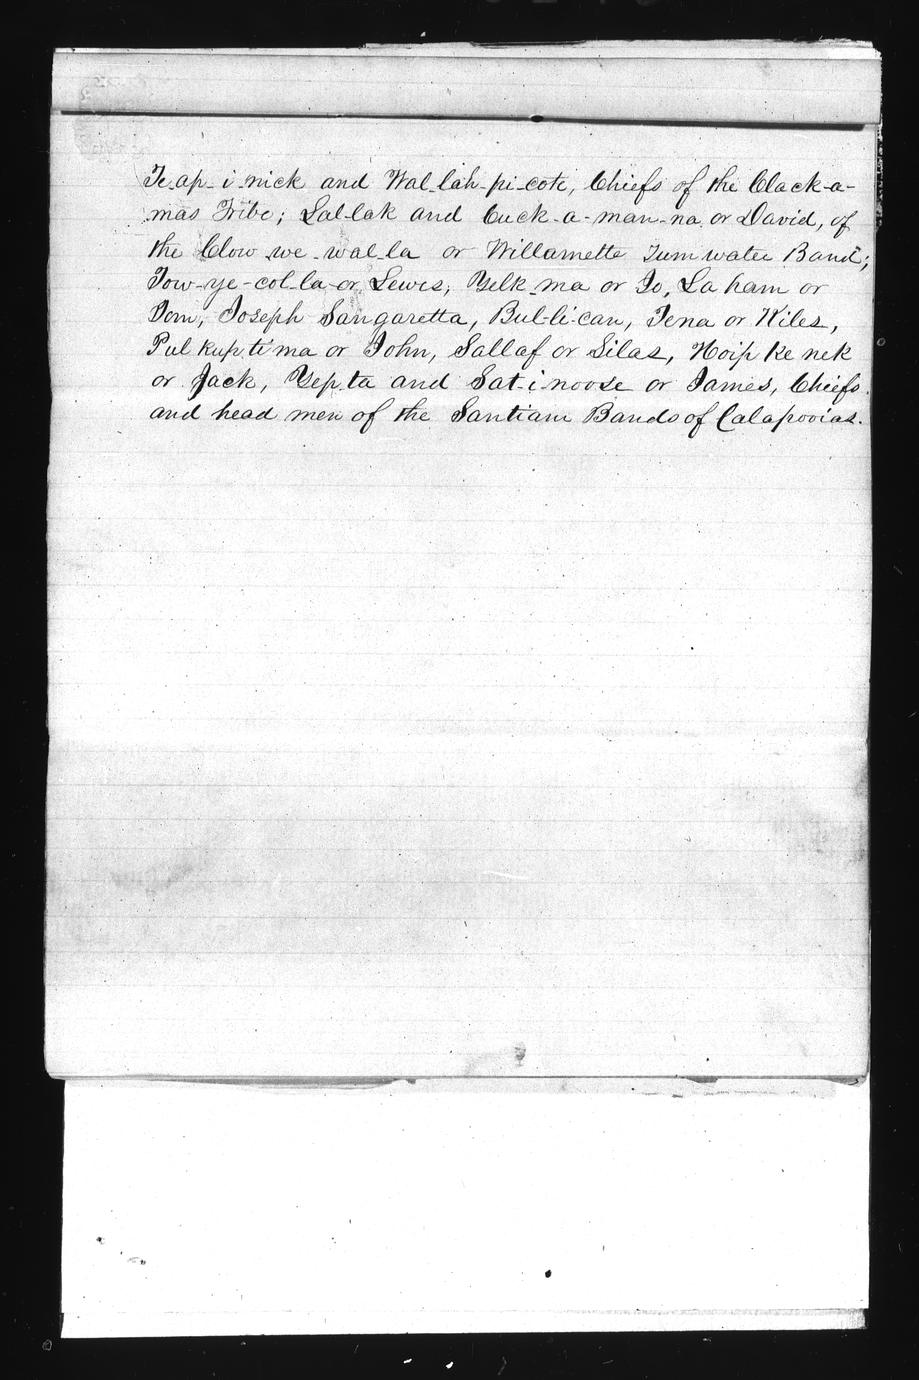 Te-ap-i-nick and Wal-lah-pi-cote, Chiefs of the Clack-a-
mas Tribe; Lal-lak and Cuck-a-man-na or David, of
the Clow-we-wal-la or Willamette Tum water Band;
Tow-ye-col-la-or Lewis, Yelk-ma or Jo, La ham or
Dom, Joseph Sangaretta, Bul-li-can, Jena or Kiles,
Pul kup ti ma or John, Sallaf or Silas, Hoip ke nek
or Jack, Yep ta and Sat-i-noose or James, Chiefs
and head men of the Santiam Bands of Calapooias.